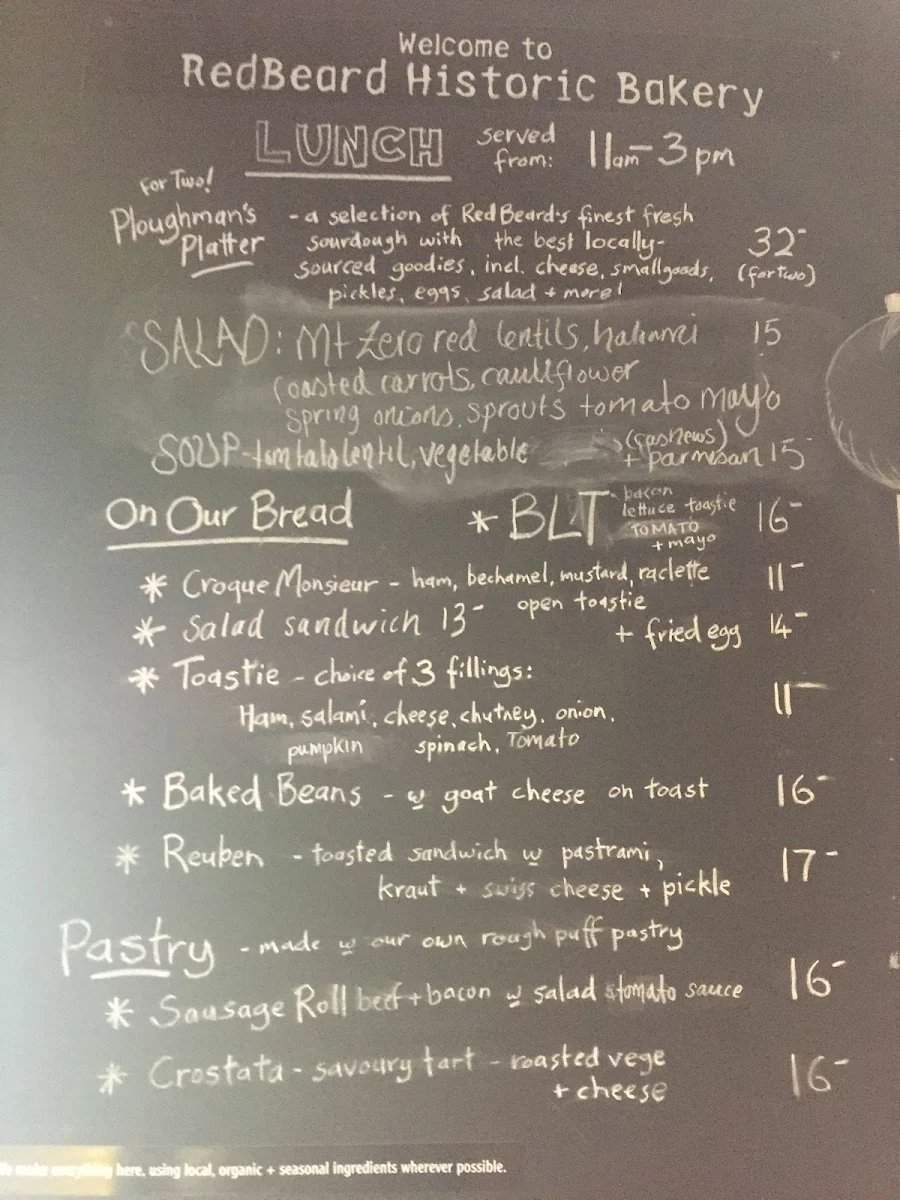 Welcome to
RedBeard Historic Bakery
LUNCH served from: 11am-3pm
For Two!
Ploughman's Platter - a selection of RedBeard's finest fresh
sourdough with the best locally-
sourced goodies, incl. cheese, smallgoods,
pickles, eggs, salad + more!
32-
(for two)
SALAD: Mt Zero red lentils, haloumi 15
roasted carrots, cauliflower
spring onions, sprouts tomato mayo
(cashews)
SOUP - tomato lentil, vegetable + parmesan 15-
On Our Bread
* BLT - bacon
lettuce toastie
TOMATO
+ mayo
16-
* Croque Monsieur - ham, bechamel, mustard, raclette 11-
open toastie
* Salad sandwich 13- + fried egg 14-
* Toastie - choice of 3 fillings: 11-
Ham, salami, cheese, chutney, onion,
pumpkin spinach, Tomato
* Baked Beans - w goat cheese on toast 16-
* Reuben - toasted sandwich w pastrami, 17-
kraut + swiss cheese + pickle
Pastry - made w our own rough puff pastry
* Sausage Roll beef + bacon w salad & tomato sauce 16-
* Crostata - savoury tart - roasted vege 16-
+ cheese
We make everything here, using local, organic + seasonal ingredients wherever possible.